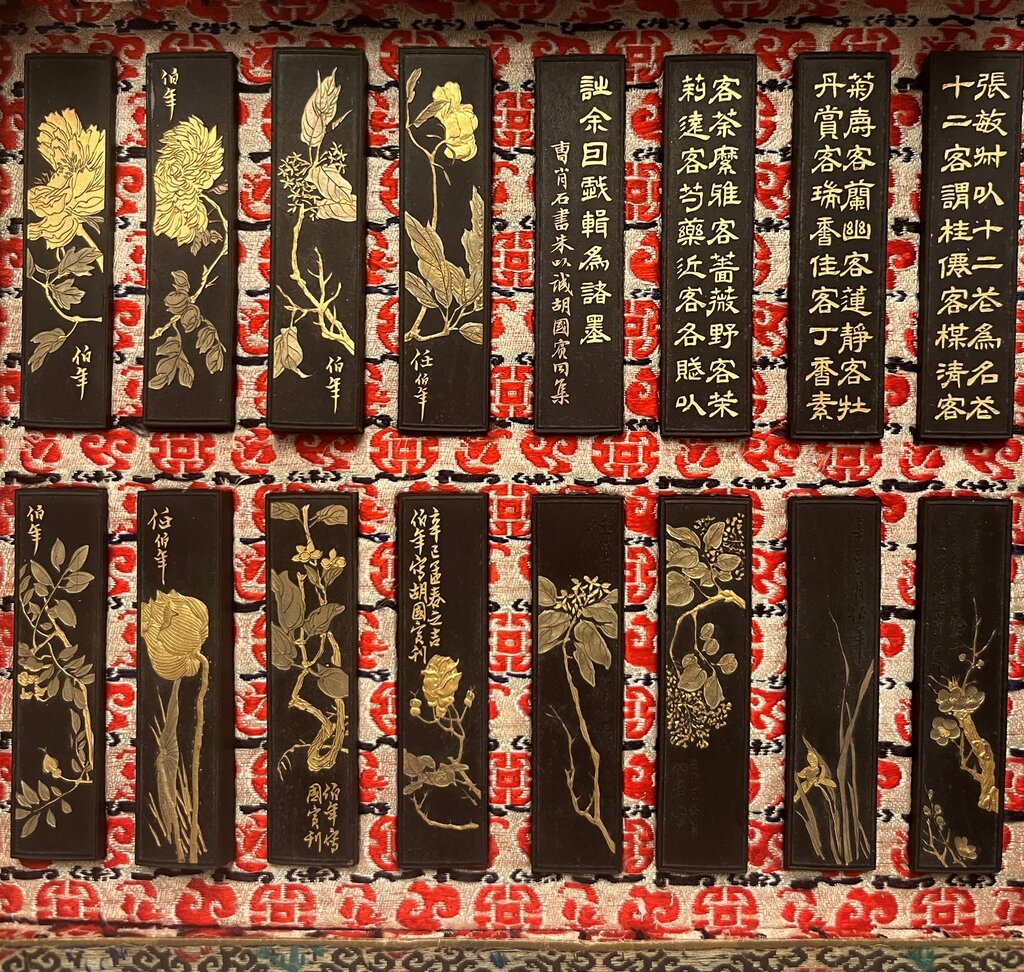 張敏叔以十二花為名花
十二客謂桂僊客楳清客
菊壽客蘭幽客蓮靜客牡
丹賞客瑞香佳客丁香素
客荼縻雅客薔薇野客茉
莉遠客芍藥近客各賦以
詩余因戲輯為諸墨
曹肖石書朱以誠胡國賓同集
任伯年
伯年
伯年
伯年
辛巳孟春之吉
伯年寫胡國賓刊
伯年寫
國賓刊
任伯年
伯年